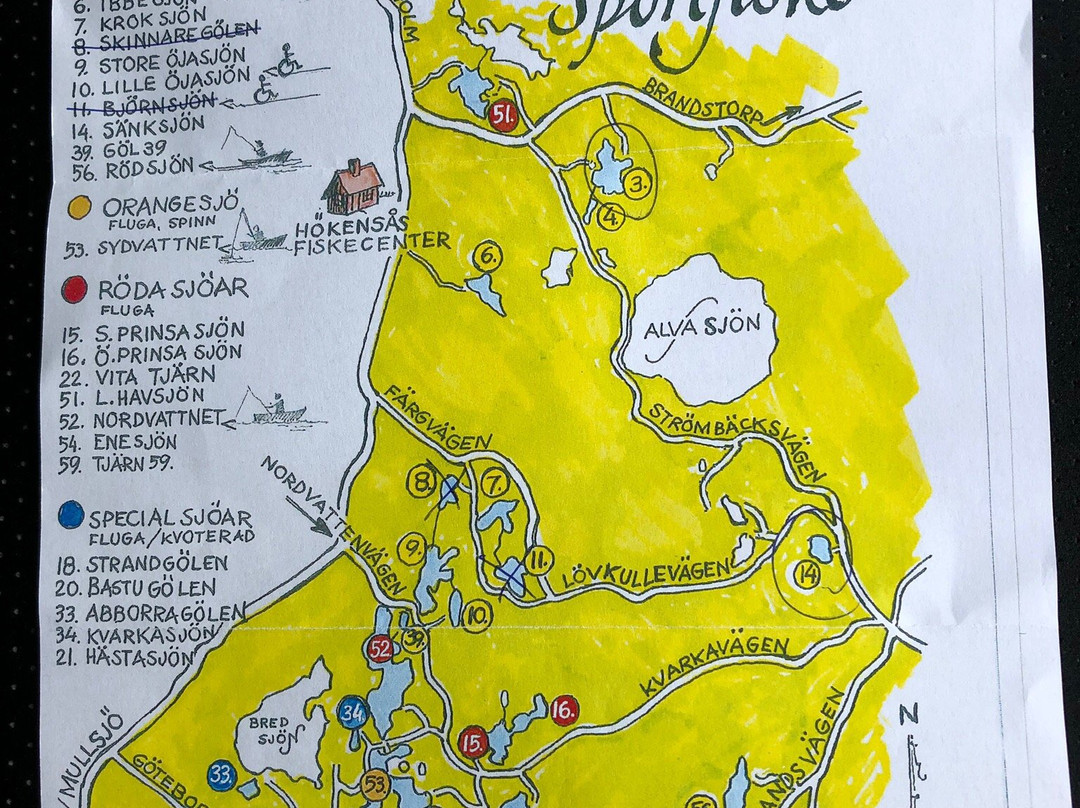 6. IBBESJÖN
7. KROKSJÖN
8. SKINNAREGÖLEN
9. STORE ÖJASJÖN
10. LILLE ÖJASJÖN
11. BJÖRNSJÖN
14. SÄNKSJÖN
39. GÖL 39
56. RÖDSJÖN
ORANGESJÖ
FLUGA, SPINN
53. SYDVATTNET
RÖDA SJÖAR
FLUGA
15. S. PRINSASJÖN
16. Ö. PRINSA SJÖN
22. VITA TJÄRN
51. L. HAVSJÖN
52. NORDVATTNET
54. ENESJÖN
59. TJÄRN 59.
SPECIAL SJÖAR
FLUGA/KVOTERAD
18. STRANDGÖLEN
20. BASTUGÖLEN
33. ABBORRAGÖLEN
34. KVARKASJÖN
21. HÄSTASJÖN
HÖKENSÅS
FISKECENTER
BRANDSTORP
51.
3.
4.
6.
ALVA SJÖN
FÄRGVÄGEN
STRÖMBÄCKSVÄGEN
NORDVATTENVÄGEN
8.
7.
9.
11.
10.
LÖVKULLEVÄGEN
14
39.
52.
KVARKAVÄGEN
34.
BRED
SJÖN
16.
15.
33.
53.
MULLSJÖ
N